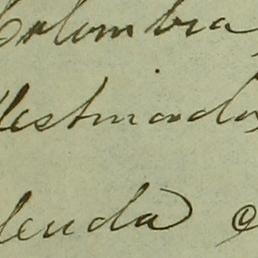 Colombia,
destinados
deuda